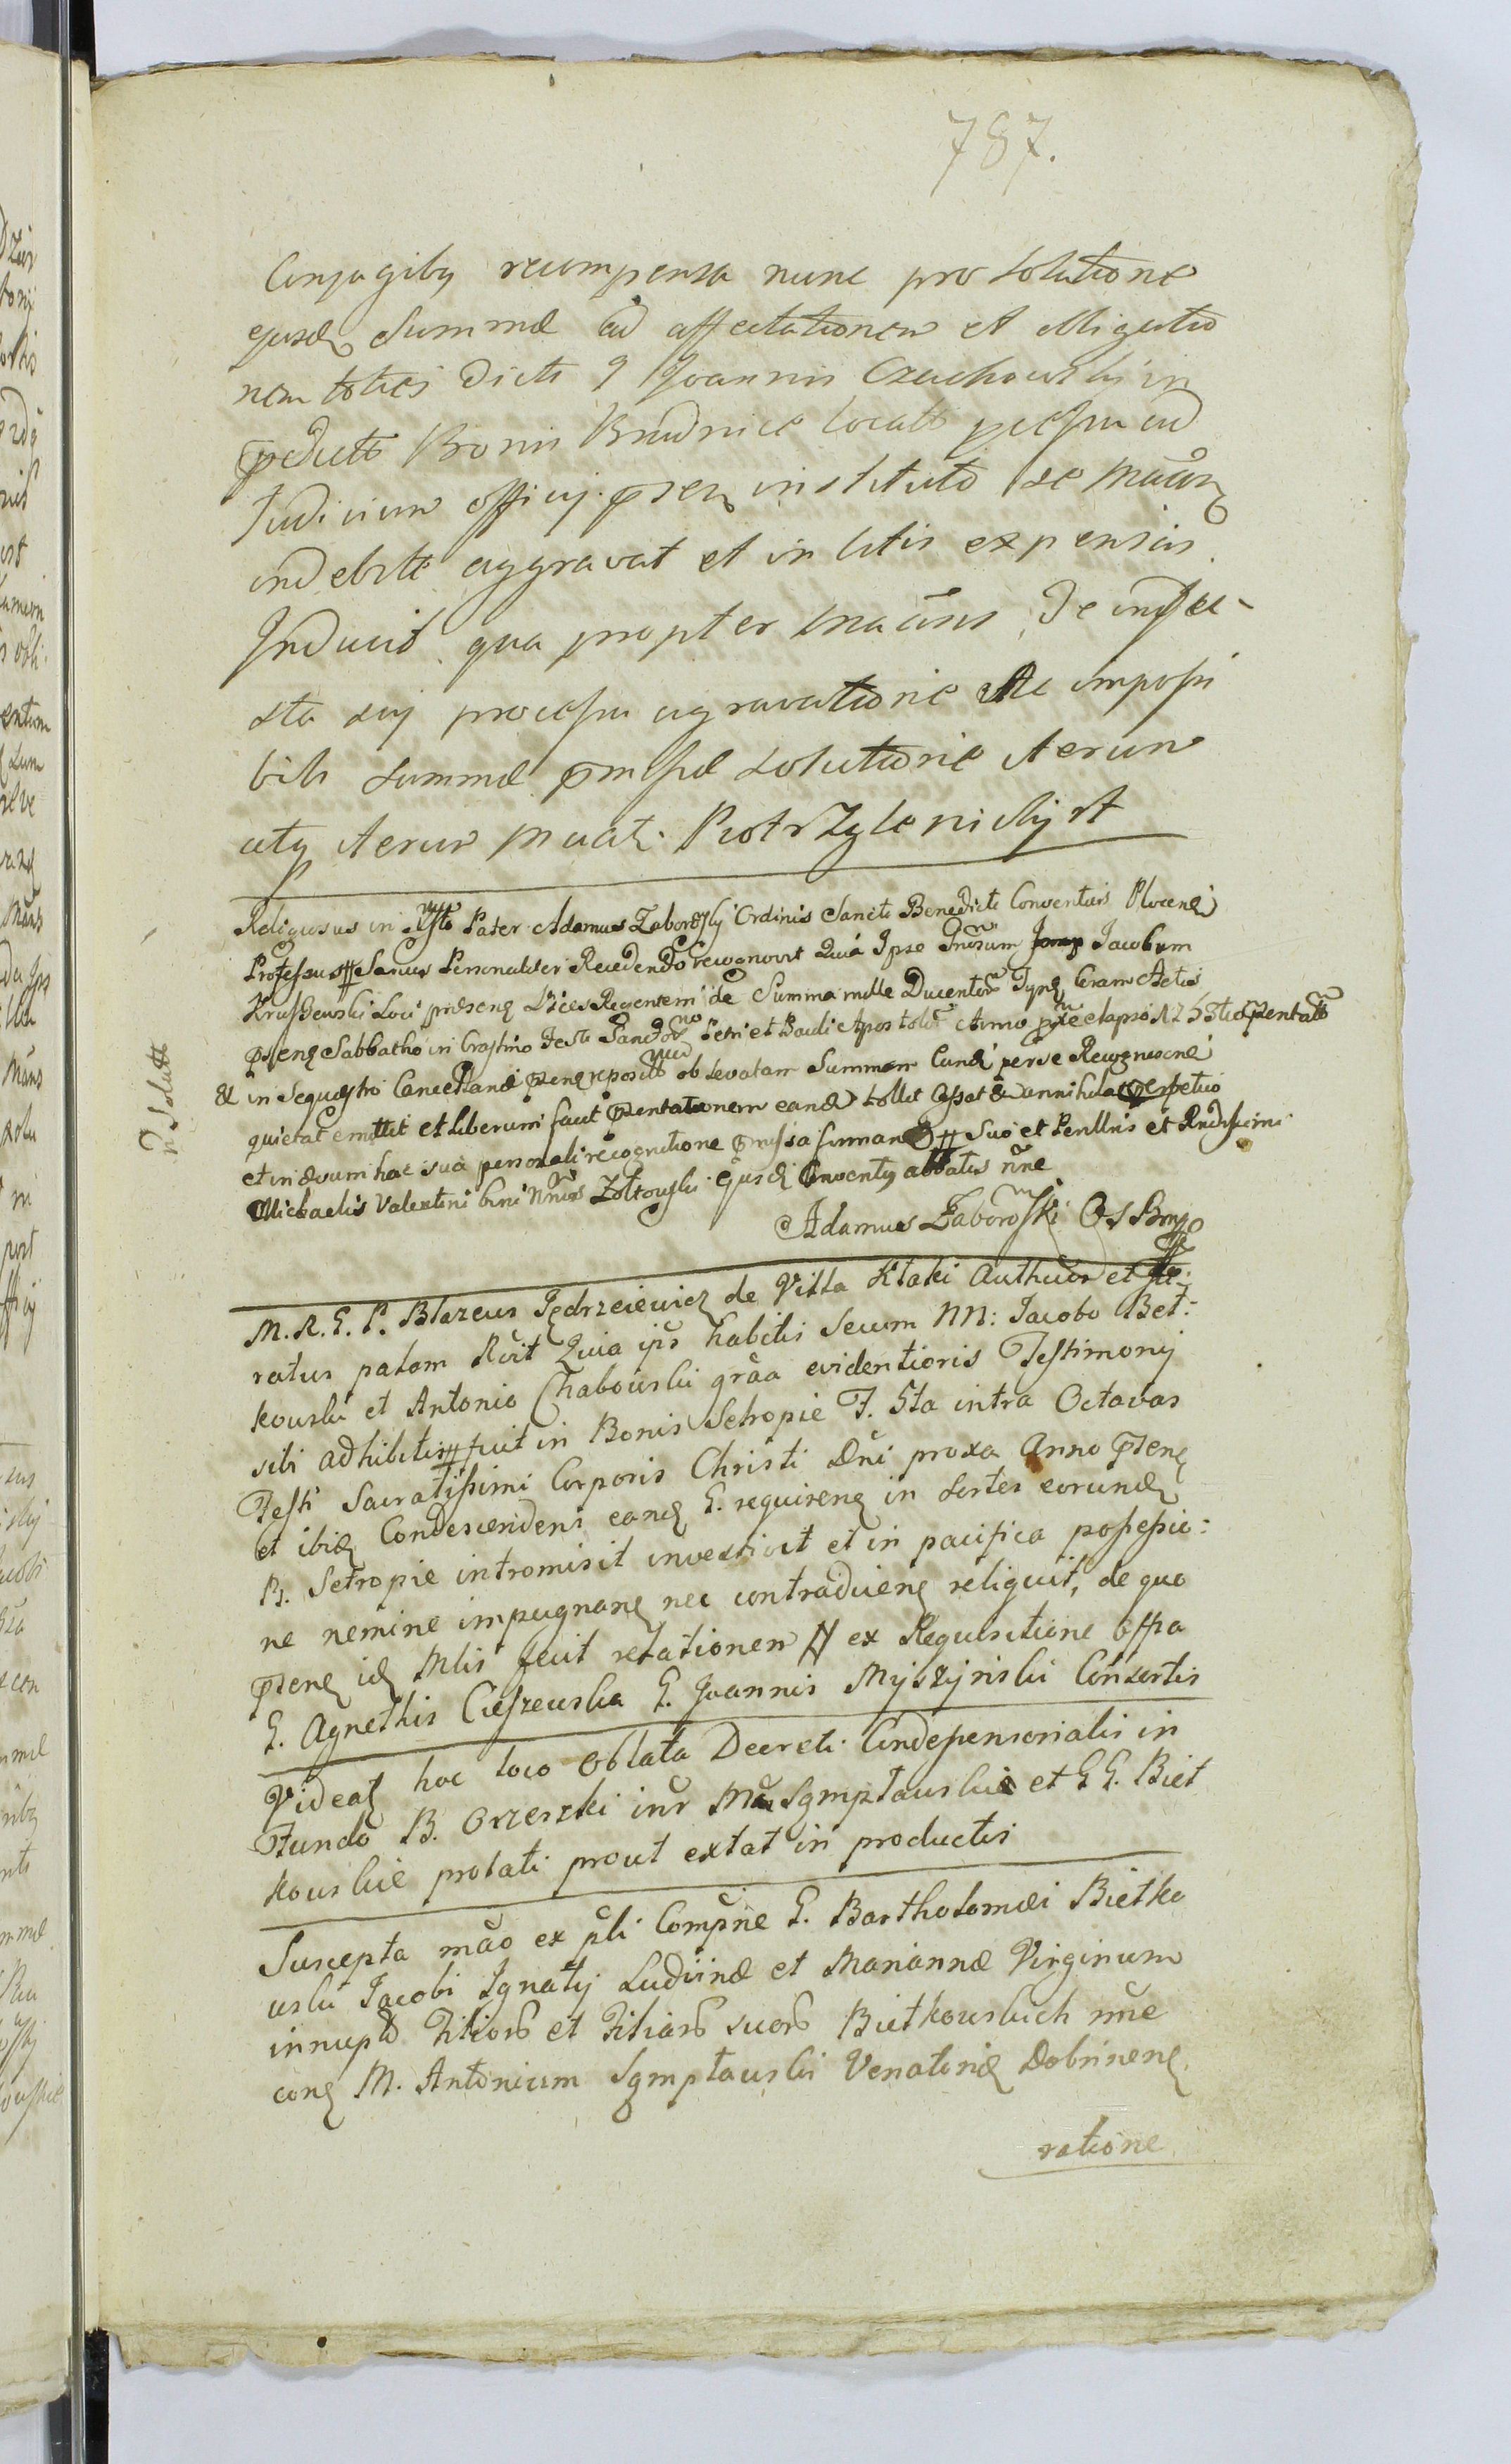 787.
Conjugibq recompensa nunc pro Solutione
ejusd Summæ ad affectationem et Migutio
nem toties Dicti G Joannis Czachowskij in
pdicto Bonis Brudnice locati pcessu ad
Judicium officij psen instituto se Måan
indebite aggravat et in litis expensas
Inducit qua propter Maans, De inju-
sta sui processu agravatione Ac impossi
bili summæ pmissæ solutione iterum
atq iterum maat. Piotr
n Solutt
Religiosus in Xsto Pater Adamus Zaborosky Ordinis Sancti Benedicti Conventus Plocen
Professus Sanus Personaliter Recedendo recognovit Quia Ipse Gnosum Jacobum
Kruszewski Loci præsen Vices Regentem de Summa mille Ducentor Tynf Coram Actis
psen Sabbatho in Crastino Festi Sanctor Petri et Pauli Apostolor Anno pxe elapso 1758
& in Sequestro Cancellariæ psen repositto oblevatam Summam Eand per se Recognoscen
quietat emittit et liberum facit psentationem eand tollit Cassat & annihilat perpetuo
et in ævum hac sua personali recognitione pmissa firman Suo et Penllris et Rndissimi
Michaelis Valentini bini Nnis Zoltowski ejusd Conventq abbatis nne
Adamus Zaboroski O S B
M. R. G. P. Blazeus Jędrzeiewicz de Villa Kłaki Authus et Ju-
ratus palam Rvit Quia ips habitis Secum NN: Jacobo Bet:
kowski et Antonio Chabowski graa evidentioris Testimonij
sibi adhibitis fuit in Bonis Setropie F. 5ta intra Octavas
Festi Sacratissimi Corporis Christi Dni proxa Anno psen
et ibid Condescendens eand G. requiren in Sortes eorund
B. Setropie intromisit investivit et in pacifica possessio:
ne nemine impugnan nec contradicen reliquit, de quo
psen id Mlis fecit relationem ex Requisitione Offa
G. Agnethis Cieszewska G. Joannis Myszynski Consortis
Videat hoc loco Oblata Decreti Condepensorialis in
Fundo B. Orzeszki inr Mm Sgmptawskie et G G. Biet
kowskie prolati prout extat in productis
Suscepta mão ex pli Compne G. Bartholomæi Bietko
wski Jacobi Ignatij Ludvinæ et Mariannæ Virginum
innupt Filior et Filiar suor Bietkowskich nne
con M. Antonium Sgmptawski Venatorid Dobrinen
ratione